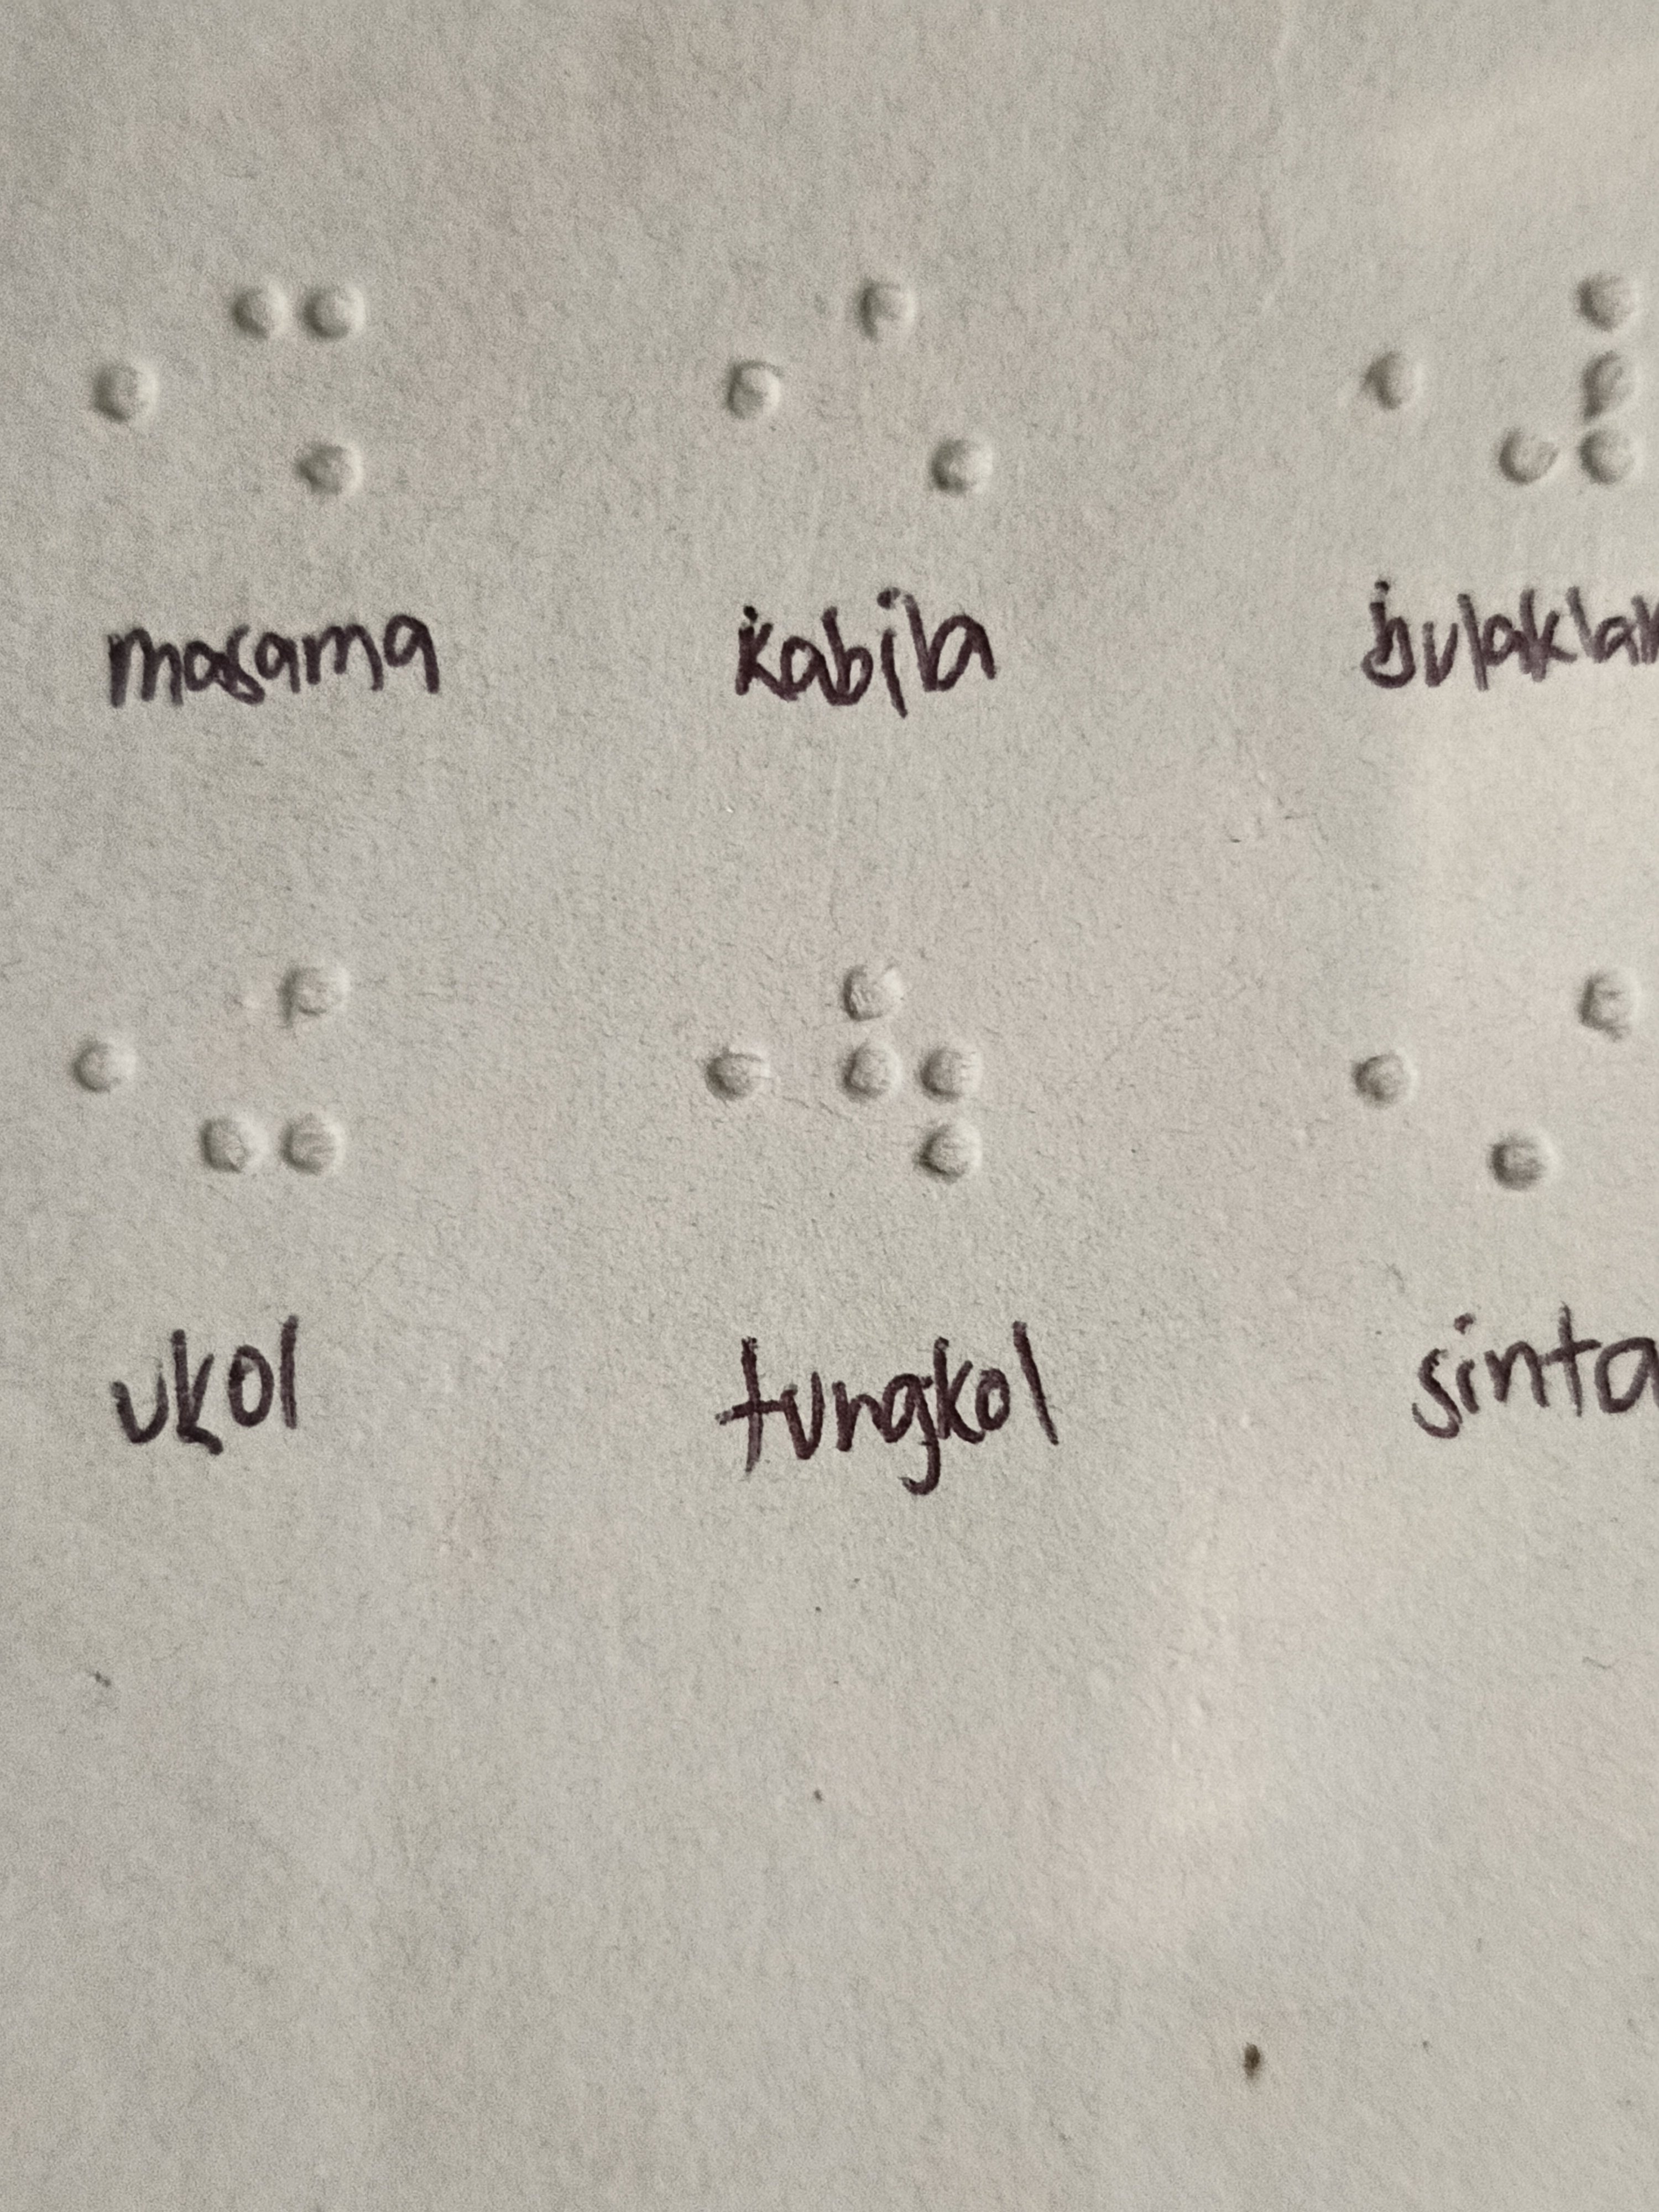 ⠐⠩ ⠐⠡ ⠐⠼
masama kabila bulaklak
⠐⠬ ⠐⠳ ⠐⠌
ukol tungkol sinta